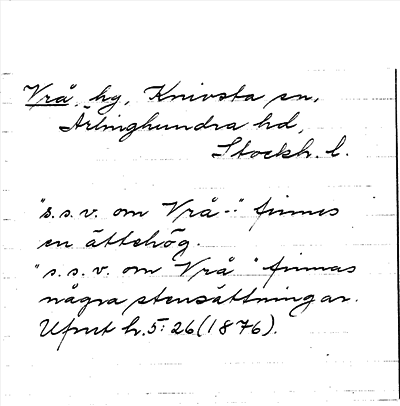 Vrå, hg, Knivsta sn,
Ärlinghundra hd,
Stockh. l.
"s.s.v. om Vrå--" finnes
en ättehög.
"s.s.v. om Vrå" finnas
några stensättningar.
Ufmt h.5:26(1876).